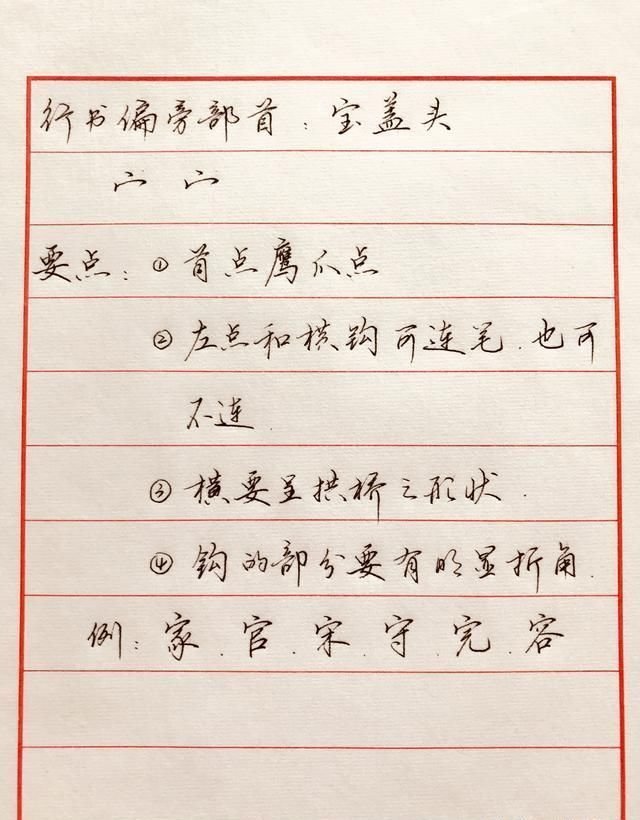 行书偏旁部首：宝盖头
宀 宀
要点：①首点鹰爪点
②左点和横钩可连笔.也可
不连.
③横要呈拱桥之形状.
④钩的部分要有明显折角.
例：家.官.宋.守.完.容